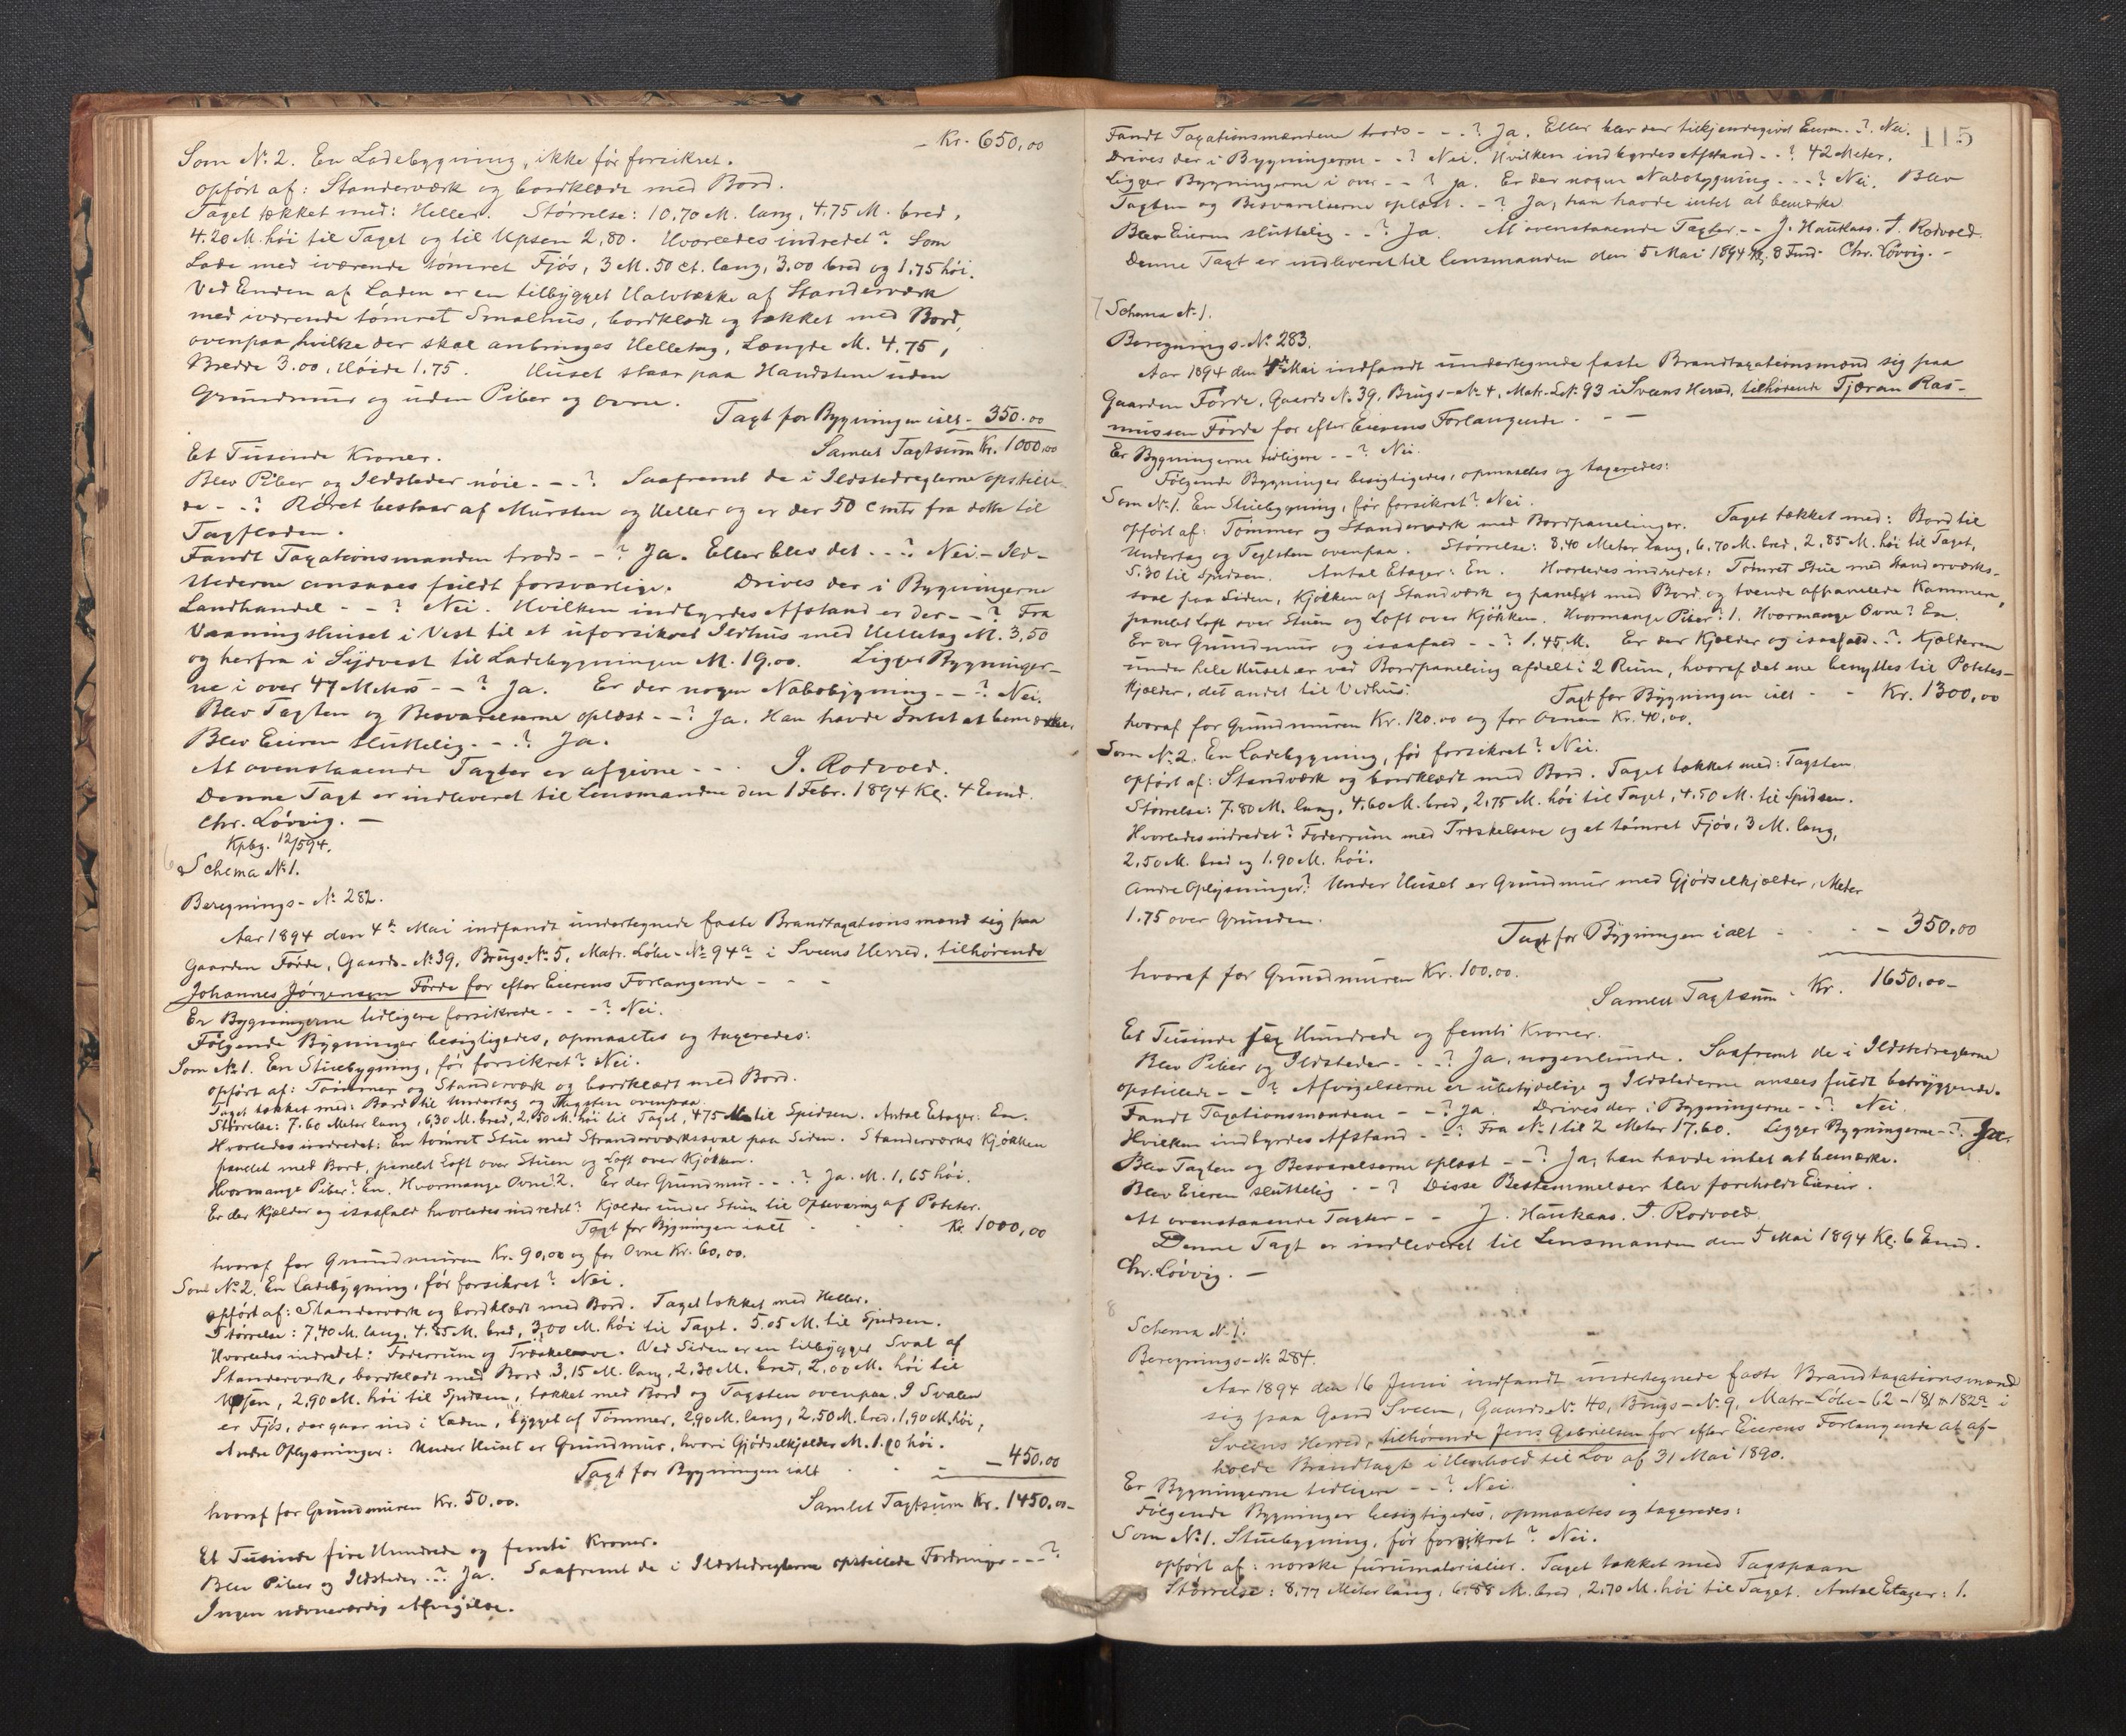 – Kr. 650,00
Som № 2. En Ladebygning, ikke før forsikret.
opført af: Standerværk og bordklædt med Bord.
Taget tækket med: Heller. Størrelse: 10,70 M. lang, 4,75 M. bred,
4.20 M. høi til Taget og til Upsen 2,80. Hvorledes indredet? Som
Lade med iværende tømret Fjøs, 3 M. 50 ct. lang, 3,00 bred og 1,75 høi.
Ved Enden af Laden er en tilbygget Halvtække af Standerværk
med iværende tømret Smalhus, bordklædt og tækket med Bord,
ovenpaa hvilke der skal anbringes Helletag, Længde M. 4,75,
Bredde 3.00, Høide 1.75. Huset staar paa Handstene uden
Grundmur og uden Piber og Ovne.
Taxt for Bygningen ialt – 350.00
Samlet Taxtsum Kr. 1000,00
Et Tusinde Kroner.
Blev Piber og Ildsteder nøie - - -? Saafremt de i Ildstedreglerne opstille
de - - ? Røret bestaar af Mursten og Heller og er der 50 cmtr fra dette til
Tagfladen.
Fandt Taxationsmanden trods - - ? Ja. Eller blev det - - ? Nei – Ild-
stederne ansaaes fuldt forsvarlige. Drives der i Bygningerne
Landhandel - - ? Nei. Hvilken indbyrdes Afstand er der - - ? Fra
Vaaningshuset i Vest til et uforsikret Ildhus med Helletag M. 3,50
og herfra i Sydvest til Ladebygningen M. 19,00. Ligger Bygninger-
ne i over 47 Meters - - ? Ja. Er der nogen Nabobygning - - ? Nei.
Blev Taxten og Besvarelserne oplæst - - ? Ja. Han havde Intet at bemærke.
Blev Eieren sluttelig - - ? Ja.
At ovenstaaende Taxter er afgivne - - - J. Rodvold.
Denne Taxt er indleveret til Lensmanden den 1 Febr. 1894 Kl. 4 Emd.
Chr. Løvvig. –
Kpbg. 12/5 94.
6
Schema № 1.
Beregnings- № 282.
Aar 1894 den 4de Mai indfandt undertegnede faste Brandtaxationsmænd sig paa
Gaarden Førde, Gaards- № 39, Brugs- № 5, Matr. Løbe- № 94a i Sveens Herred, tilhørende
Johannes Jørgensen Førde for efter Eierens Forlangende - - -
Er Bygningerne tidligere forsikrede - - - ? Nei.
Følgende Bygninger besigtigedes, opmaaltes og taxeredes:
Som № 1. En Stuebygning, før forsikret? Nei.
opført af: Tømmer og Standerværk og bordklædt med Bord.
Taget tækket med: Bord til Undertag og Tagsten ovenpaa.
Størrelse: 7.60 Meter lang, 6,30 M. bred, 2,50 M. høi til Taget, 4,75 M. til Spidsen. Antal Etager: En.
Hvorledes indredet: En tømret Stue med Standerværkssval paa Siden. Standerværks Kjøkken
panelet med Bord, panelet Loft over Stuen og Loft over Kjøkken.
Hvormange Piber? En. Hvormange Ovne? 2. Er der Grundmur - - - ? Ja. M. 1,65 høi.
Er der Kjælder og isaafald hvorledes indredet? Kjælder under Stuen til Opbevaring af Poteter.
Taxt for Bygningen ialt - - - Kr. 1000,00
hvoraf for Grundmuren Kr. 90,00 og for Ovne Kr. 60,00.
Som № 2. En Ladebygning, før forsikret? Nei.
opført af: Standerværk og bordklædt med Bord. Taget tækket med Heller.
Størrelse: 7,40 M. lang, 4.85 M. bred, 3,00 M. høi til Taget. 5.05 M. til Spidsen.
Hvorledes indredet: Foderrum og Træskelove. Ved Siden er en tilbygget Sval af
Standerværk, bordklædt med Bord 3,15 M. lang, 2,30 M. bred, 2,00 M. høi til
Upsen, 2,90 M. høi til Spidsen, tækket med Bord og Tagsten ovenpaa. I Svalen
er Fjøs, der gaar ind i Laden, bygget af Tømmer, 2,90 M. lang, 2,50 M. bred, 1,90 M. høi,
Andre Oplysninger: Under Huset er Grundmur, hvori Gjødselkjælder M. 1.90 høi.
Taxt for Bygningen ialt - - – 450,00
hvoraf for Grundmuren Kr. 50,00. Samlet Taxtsum Kr. 1450,00 –
Et Tusinde fire Hundrede og femti Kroner.
Blev Piber og Ildsteder - - ? Ja. Saafremt de i Ildstedreglerne opstillede Fordringer - - - ?
Ingen nævneværdig Afvigelse.
115
Fandt Taxationsmændene trods - - - ? Ja. Eller blev der tilkjendegivet Eieren - ? Nei.
Drives der i Bygningerne - - ? Nei. Hvilken indbyrdes Afstand - - ? 42 Meter.
Ligger Bygningerne i over - - ? Ja. Er der nogen Nabobygning - - - ? Nei. Blev
Taxten og Besvarelserne oplæst - - ? Ja, han havde intet at bemærke.
Blev Eieren sluttelig - - ? Ja. At ovenstaaende Taxter - - J. Haukaas. J. Rodvold.
Denne Taxt er indleveret til Lensmanden den 5 Mai 1894 Kl. 8 Fmd. Chr. Løvvig. –
7
Schema № 1.
Beregnings- № 283.
Aar 1894 den 4de Mai indfandt undertegnede faste Brandtaxationsmænd sig paa
Gaarden Førde, Gaards № 39, Brugs- № 4, Matr. L № 93 i Sveens Herred, tilhørende Tjæran Ras-
mussen Førde for efter Eierens Forlangende - — —
Er Bygningerne tidligere - - ? Nei.
Følgende Bygninger besigtigedes, opmaaltes og taxeredes:
Som № 1. En Stuebygning, før forsikret? Nei.
opført af: Tømmer og Standerværk med Bordpanelinger. Taget tækket med: Bord til
Undertag og Teglsten ovenpaa. Størrelse: 8,40 Meter lang, 6,70 M. bred, 2,85 M. høi til Taget,
5.30 til Spidsen. Antal Etager: En. Hvorledes indredet: Tømret Stue med Standerværks-
sval paa Siden, Kjøkken af Standværk og panelet med Bord og tvende afpanelede Kammere,
panelet Loft over Stuen og Loft over Kjøkken. Hvormange Piber: 1. Hvormange Ovne? En.
Er der Grundmur og isaafald - - ? 1.45 M. Er der Kjælder og isaafald - ? Kjælderen
under hele Huset er ved Bordpaneling afdelt i 2 Rum, hvoraf det ene benyttes til Potetes-
kjælder, det andet til Vedhus. Taxt for Bygningen ialt - - Kr. 1300,00
hvoraf for Grundmuren Kr. 120.00 og for Ovnen Kr. 40,00.
Som № 2. En Ladebygning, før forsikret? Nei.
opført af: Standværk og bordklædt med Bord. Taget tækket med: Tagsten.
Størrelse: 7.80 M. lang, 4.60 M. bred, 2,75 M. høi til Taget, 4,50 M. til Spidsen.
Hvorledes indredet? Foderrum med Træskelove og et tømret Fjøs, 3 M. lang,
2,50 M. bred og 1.90 M. høi.
Andre Oplysninger? Under Huset er Grundmur med Gjødselkjælder, Meter
1.75 over Grunden.
Taxt for Bygningen ialt - - - – 350,00
hvoraf for Grundmuren Kr. 100,00.
Samlet Taxtsum - Kr. 1650,00 –
Et Tusinde sex Hundrede og femti Kroner.
Blev Piber og Ildsteder - - - ? Ja, nogenlunde. Saafremt de i Ildstedreglerne
opstillede - - ? Afvigelserne er ubetydelige og Ildstederne ansees fuldt betryggende.
Fandt Taxationsmændene - - ? Ja. Drives der i Bygningerne - - ? Nei.
Hvilken indbyrdes Afstand - - ? Fra № 1 til 2 Meter 17,60. Ligger Bygningerne - ? Ja.
Blev Taxten og Besvarelserne oplæst - - ? Ja, han havde intet at bemærke.
Blev Eieren sluttelig - - ? Disse Bestemmelser blev foreholdt Eieren.
At ovenstaaende Taxter - - J. Haukaas. J. Rodvold.
Denne Taxt er indleveret til Lensmanden den 5 Mai 1894 Kl. 6 Emd.
Chr. Løvvig. –
8
Schema № 1.
Beregnings- № 284.
Aar 1894 den 16 Juni indfandt undertegnede faste Brandtaxationsmænd
sig paa Gaard Sveen, Gaards № 40, Brugs- № 9, Matr- Løbe- 62 – 181 & 182a i
Sveens Herred, tilhørende Jens Gabrielsen for efter Eierens Forlangende at af-
holde Brandtaxt i Henhold til Lov af 31 Mai 1890.
Er Bygningerne tidligere - - ? Nei.
Følgende Bygninger besigtigedes, opmaaltes og taxeredes:
Som № 1. Stuebygning, før forsikret? Nei.
opført af: norske furumaterialier. Taget tækket med Tagspaan
Størrelse: 8,77 Meter lang, 6.88 M. bred, 2,70 M. høi til Taget. Antal Etager: 1.